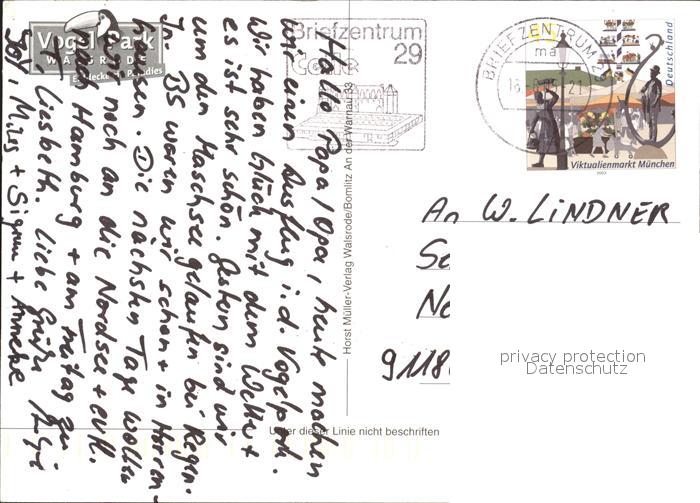 Vogelpark
WALSRODE
Hallo Papa/Opa, heute machen
wir einen Ausflug i. d. Vogelpark.
Wir haben Glück mit dem Wetter +
es ist sehr schön. Gestern sind wir
um den Maschsee gelaufen bei Regen.
In BS waren wir schon + in Herren-
hausen. Die nächsten Tage wollen
noch an die Nordsee + evtl.
nach Hamburg + am Freitag zu
T. Liesbeth. Liebe Grüße
Miles + Sigrun + Anneke
Briefzentrum
29
Celle
Horst Müller-Verlag Walsrode/Bomlitz An der Warnau 33
Unter dieser Linie nicht beschriften
BRIEFZENTRUM
ma
21
Deutschland
Viktualienmarkt München
2003
An W. LINDNER
9118
privacy protection
Datenschutz